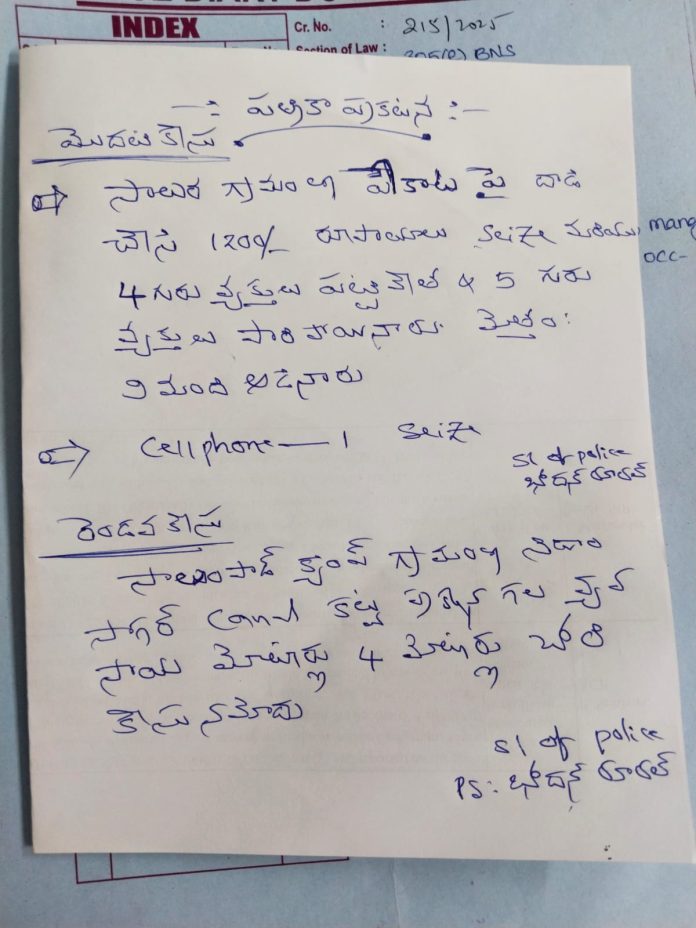 INDEX
Cr. No. : 215/2025
Section of Law : BNS
—: పత్రికా ప్రకటన :—
మొదటి కేసు
⇒ సాలుర గ్రామంలో పేకాట పై దాడి
చేసి 1200/- రూపాయలు seize మరియు
4 గురు వ్యక్తులు పట్టివేత & 5 గురు
వ్యక్తులు పారిపోయినారు. మొత్తం:
9 మంది ఆడినారు
⇒ Cellphone — 1 seize
SI of police
బోధన్ రూరల్
రెండవ కేసు
సాలంపాడ్ క్యాంప్ గ్రామంలో నిజాం
సాగర్ Canal కట్ట ప్రక్కన గల వ్యవ
సాయ మోటార్లు 4 మోటార్లు చోరి
కేసు నమోదు
SI of police
PS: బోధన్ రూరల్